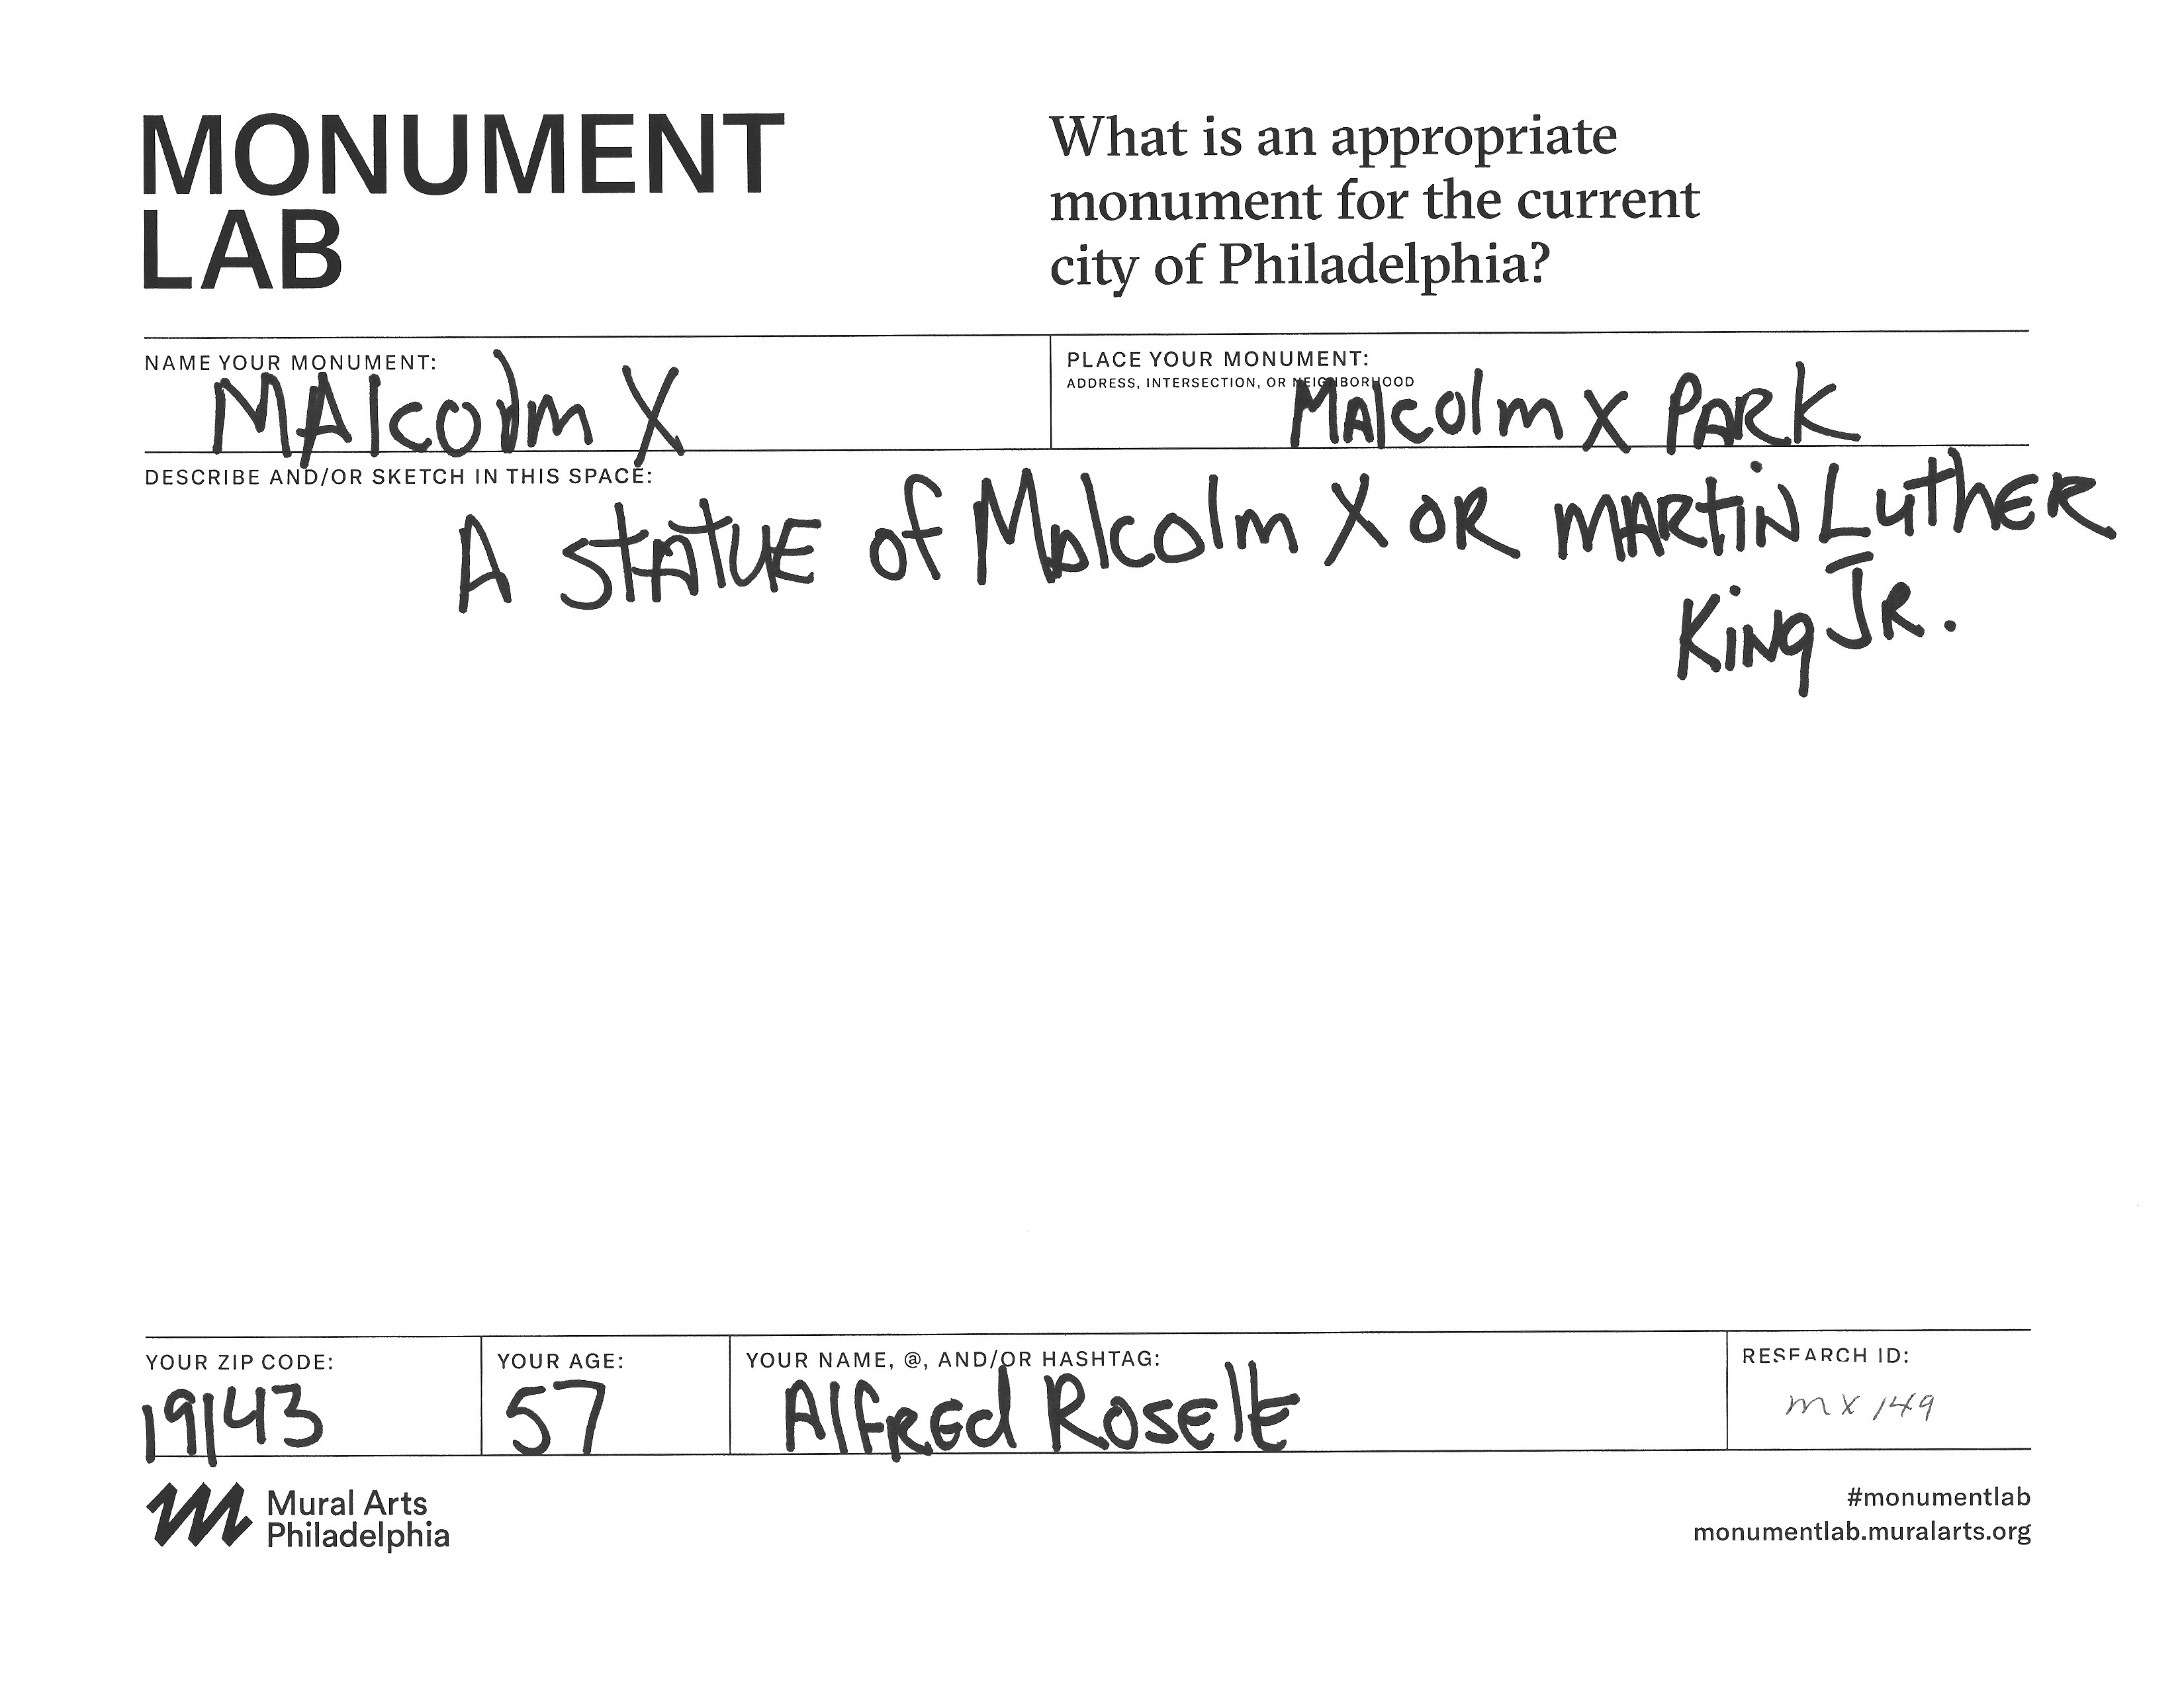 MONUMENT
LAB
What is an appropriate
monument for the current
city of Philadelphia?
NAME YOUR MONUMENT:
MAlcolm X
PLACE YOUR MONUMENT:
ADDRESS, INTERSECTION, OR NEIGHBORHOOD
MAlcolm X PARK
DESCRIBE AND/OR SKETCH IN THIS SPACE:
A STATUE of Malcolm X OR MARTIN LuthER
KiNg JR.
YOUR ZIP CODE:
19143
YOUR AGE:
57
YOUR NAME, @, AND/OR HASHTAG:
AlfREd
RESEARCH ID:
mx 149
Mural Arts
Philadelphia
#monumentlab
monumentlab.muralarts.org